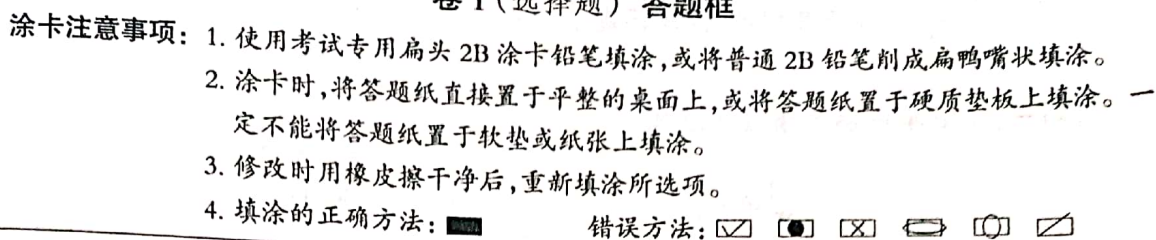 卷 I (选择题) 答题框
涂卡注意事项: 1. 使用考试专用扁头 2B 涂卡铅笔填涂,或将普通 2B 铅笔削成扁鸭嘴状填涂。
2. 涂卡时,将答题纸直接置于平整的桌面上,或将答题纸置于硬质垫板上填涂。一
定不能将答题纸置于软垫或纸张上填涂。
3. 修改时用橡皮擦干净后,重新填涂所选项。
4. 填涂的正确方法: 错误方法: